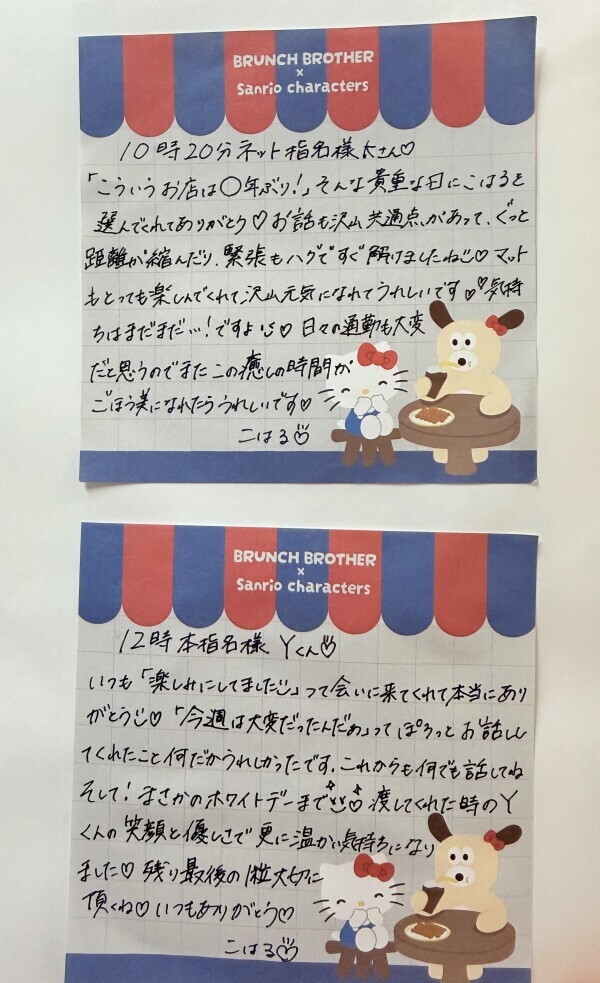 BRUNCH BROTHER
×
Sanrio characters
10時20分ネット指名様Kさん♡
「こういうお店は〇年ぶり!」そんな貴重な日にこはるを
選んでくれてありがとう♡お話も沢山共通点があって、ぐっと
距離が縮んだり、緊張もハグですぐ解けましたね♡マット
もとっても楽しんでくれて沢山元気になれてうれしいです♡♡気持
ちはまだまだ…!ですよ♡日々の通勤も大変
だと思うのでまたこの癒しの時間が
ごほう美になれたらうれしいです♡
こはる♡
BRUNCH BROTHER
×
Sanrio characters
12時本指名様 Yくん♡
いつも「楽しみにしてました」って会いに来てくれて本当にあり
がとう♡「今週は大変だったんだぁ」ってぽろっとお話しし
てくれたこと何だかうれしかったです。これからも何でも話してね
そして!まさかのホワイトデーまで♡渡してくれた時のY
くんの笑顔と優しさで更に温かい気持ちになり
ました♡残り最後の1粒大切に
頂くね♡いつもありがとう♡
こはる♡